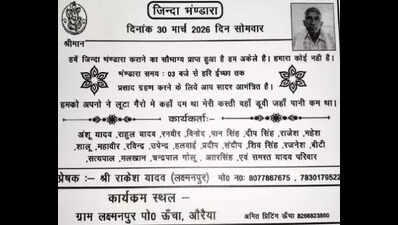 जिन्दा भंण्डारा
दिनांक 30 मार्च 2026 दिन सोमवार
श्रीमान
हमें जिन्दा भंण्डारा कराने का सौभाग्य प्राप्त हुआ है हम अकेले है। हमारा कोई नही है।
भंण्डारा समय : 03 बजे से हरि ईच्छा तक
प्रसाद ग्रहण करने के लिये आप सादर आमंत्रित है।
हमको अपनो ने लूटा गैरो मे कहाँ दम था मेरी कस्ती वहाँ डूबी जहाँ पानी कम था।
कार्यकर्ताः-
अंशू यादव ,राहुल यादव ,रनवीर ,विनोद ,पान सिंह ,दीप सिंह ,राजेश ,महेश
,शालू ,महावीर ,रविन्द्र ,उपेन्द्र ,हलवाई ,प्रदीप ,संदीप ,शिव सिंह ,रजनेश ,बीटी
,सत्यपाल ,मलखान ,चन्द्रपाल गोलू , अतरसिंह ,एवं समस्त यादव परिवार
प्रेषक :- श्री राकेश यादव (लक्ष्मनपुर) मो0 नं0: 8077887675 , 7830179522
कार्यकम स्थल -
ग्राम लक्ष्मनपुर पो0 ऊँचा, औरैया
अमित प्रिंटिंग ऊँचा